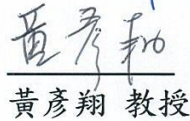 黃彥翔
黃彥翔 教授